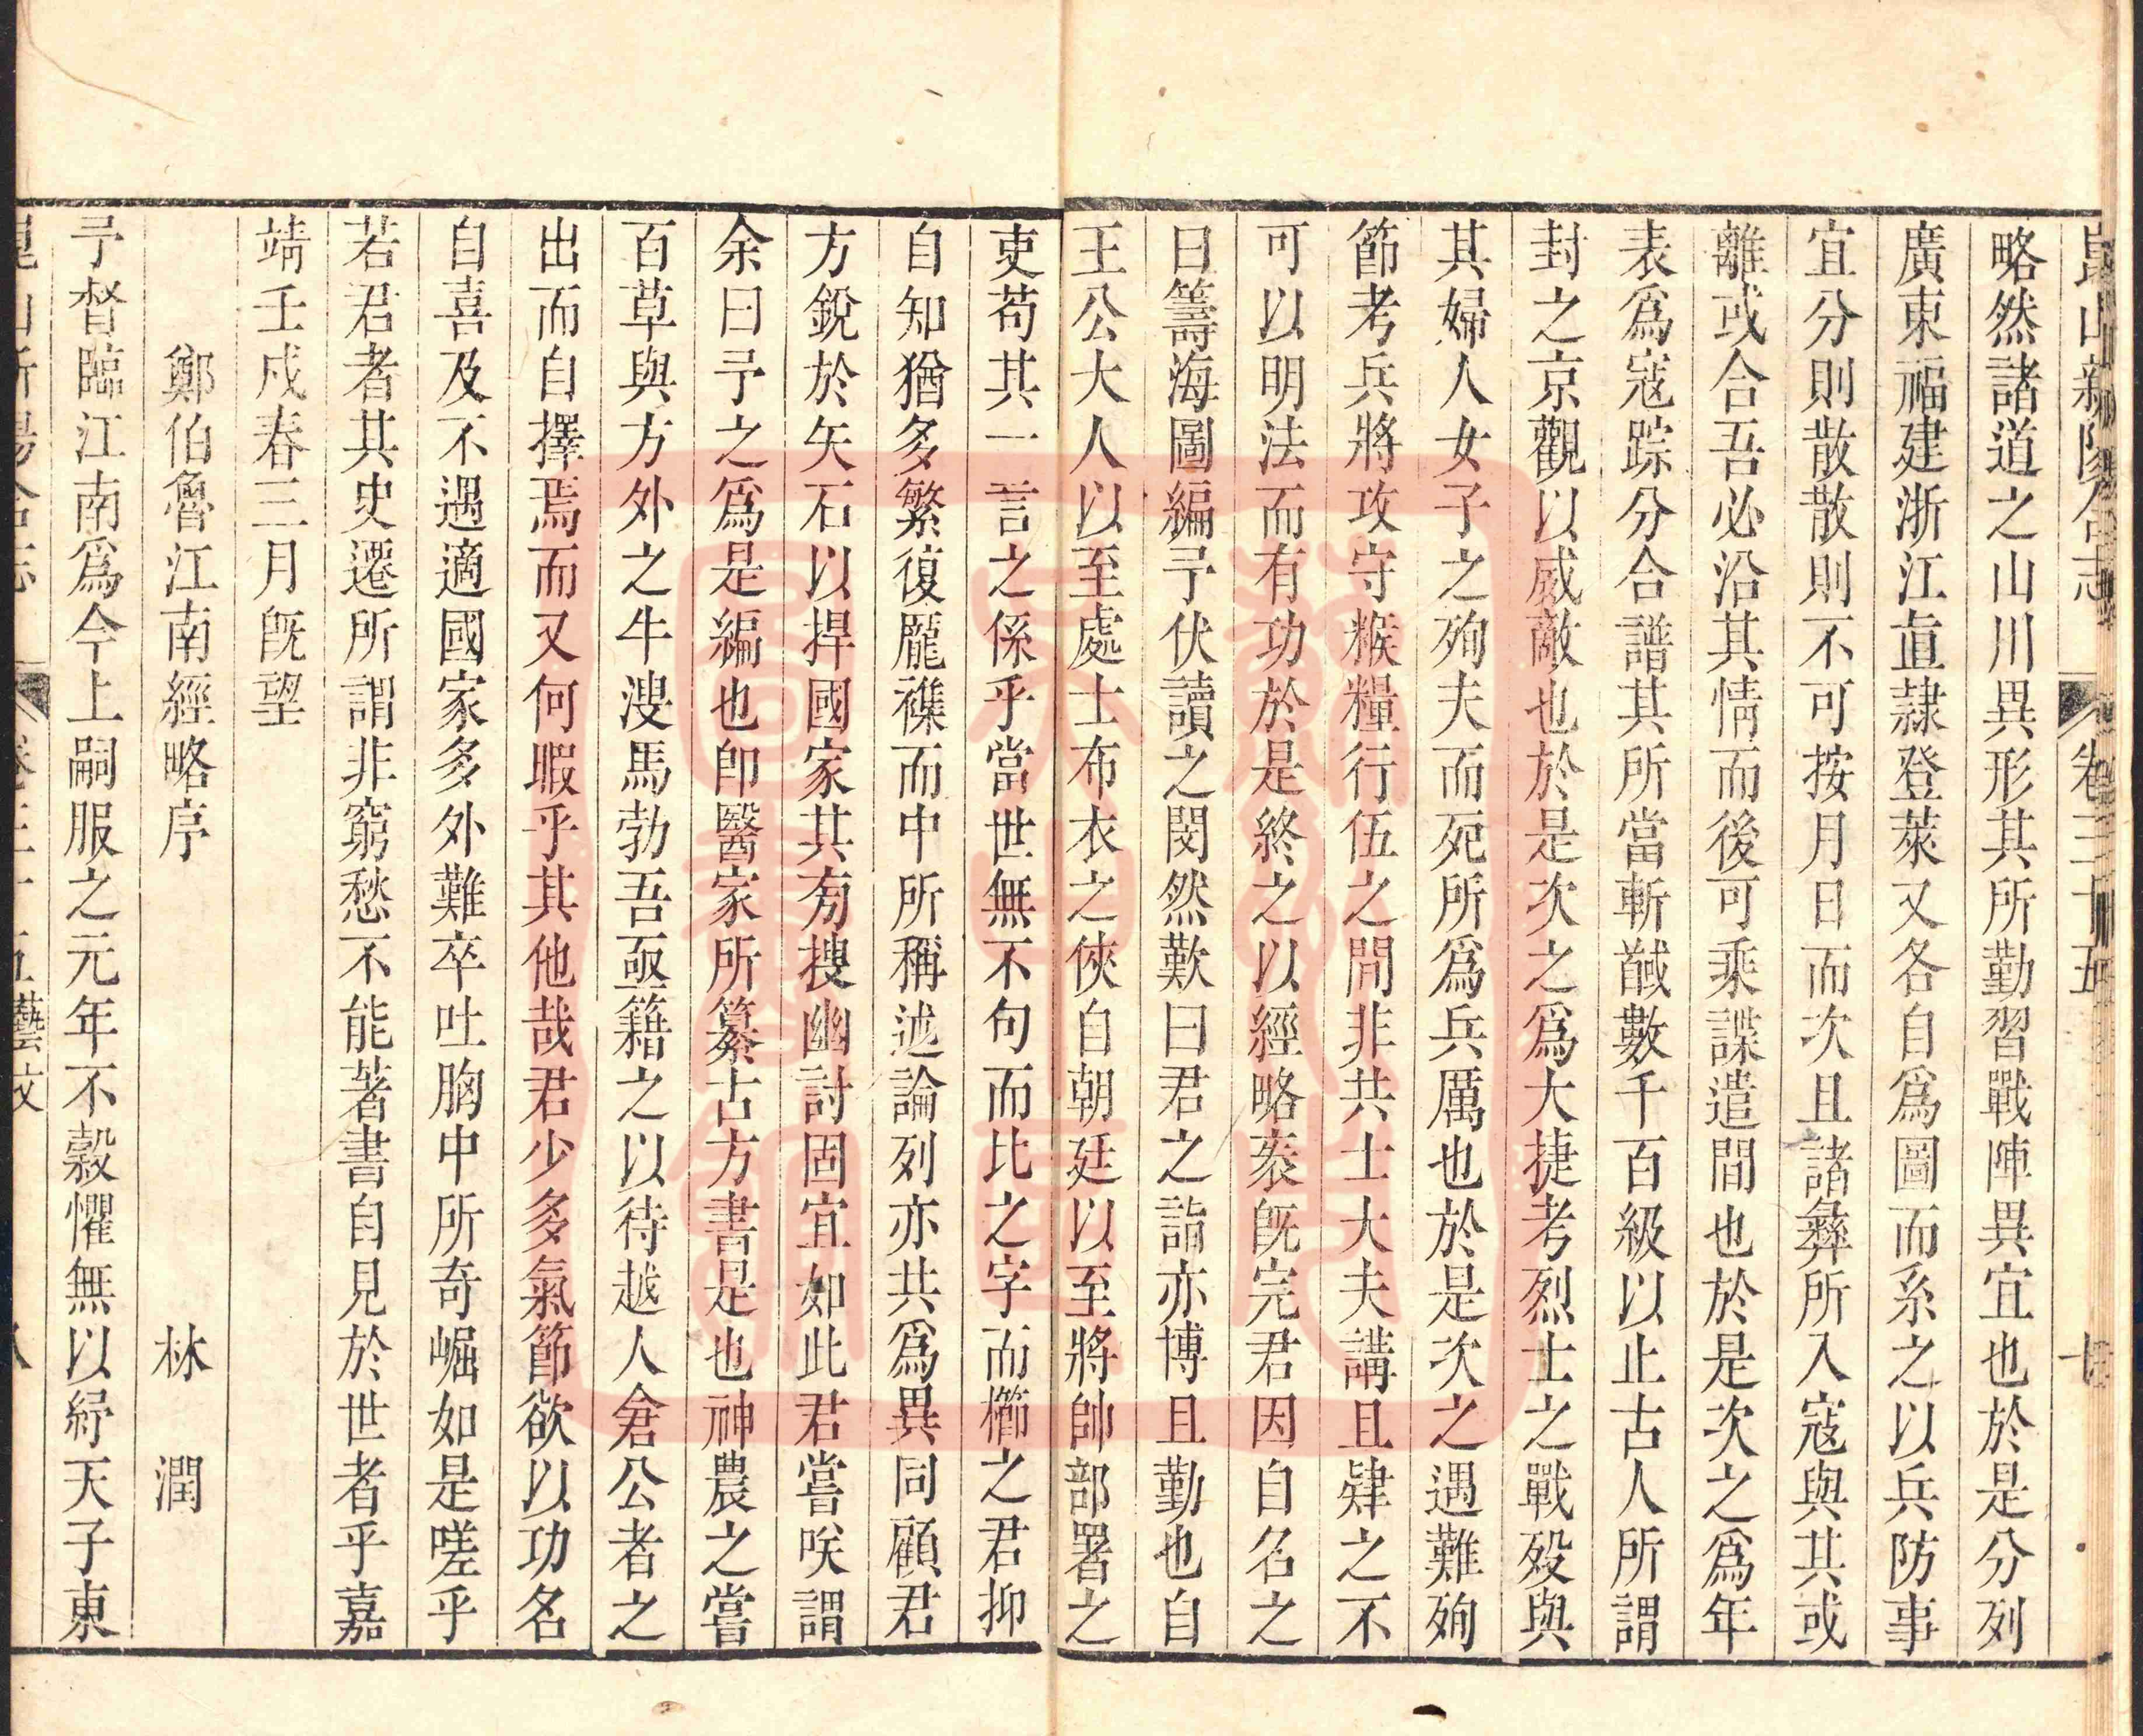 崑山新陽合志 卷三十五
略然諸道之山川異形其所勤習戰陣異宜也於是分列
廣東福建浙江直隷登萊又各自爲圖而系之以兵防事
宜分則散散則不可按月日而次且諸彝所入寇與其或
離或合吾必沿其情而後可乘諜遣間也於是次之爲年
表爲寇踪分合譜其所當斬馘數千百級以止古人所謂
封之京觀以威敵也於是次之爲大捷考烈士之戰歿與
其婦人女子之殉夫而死所爲兵厲也於是次之遇難殉
節考兵將攻守糇糧行伍之間非共士大夫講且肄之不
可以明法而有功於是終之以經略袤旣完君因自名之
曰籌海圖編予伏讀之閔然歎曰君之詣亦博且勤也自
王公大人以至處士布衣之俠自朝廷以至將帥部署之
吏苟其一言之係乎當世無不句而比之字而櫛之君抑
自知猶多繁復龎襍而中所稱述論列亦共爲異同顧君
方銳於矢石以捍國家其旁搜幽討固宜如此君嘗咲謂
余曰予之爲是編也卽醫家所纂古方書是也神農之嘗
百草與方外之牛溲馬勃吾亟籍之以待越人倉公者之
出而自擇焉而又何暇乎其他哉君少多氣節欲以功名
自喜及不遇適國家多外難卒吐胸中所奇崛如是嗟乎
若君者其史遷所謂非窮愁不能著書自見於世者乎嘉
靖壬戍春三月旣望
鄭伯魯江南經略序 林 潤
予督臨江南爲今上嗣服之元年不穀懼無以紓天子東
五藝文